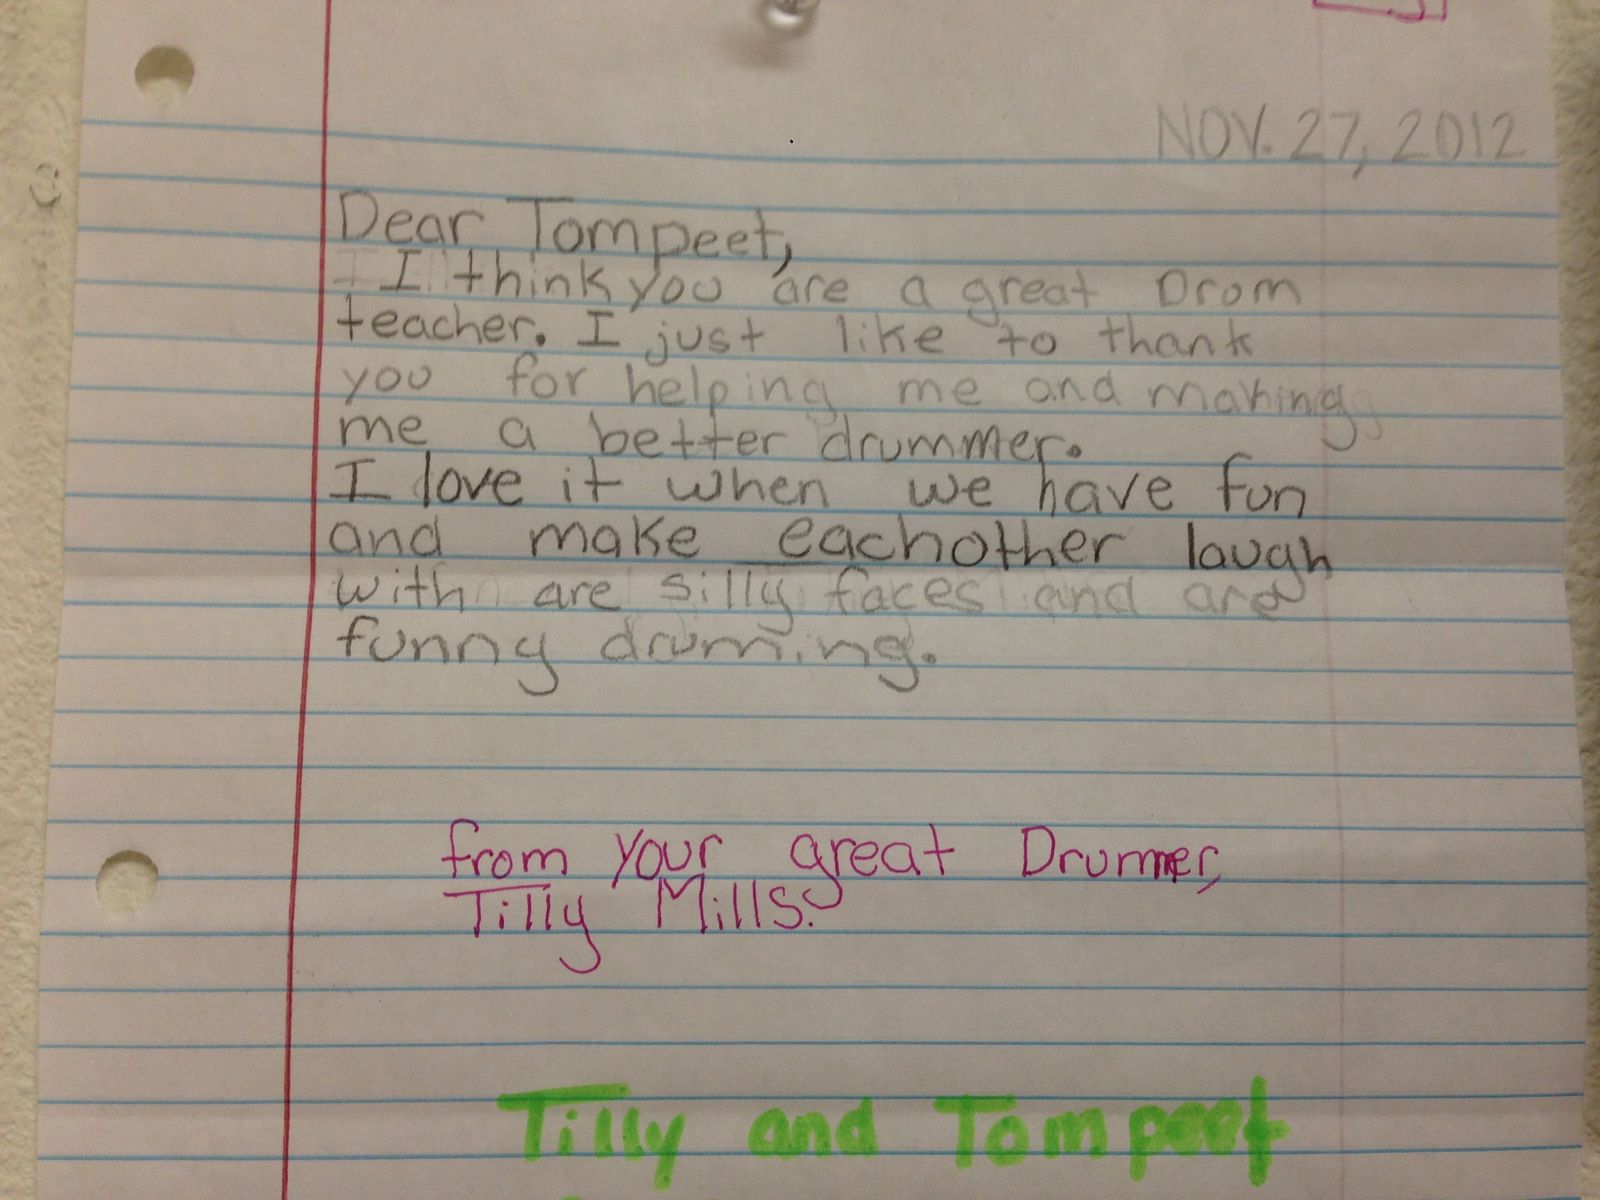 NOV. 27, 2012
Dear Tompeet,
I think you are a great Drom
teacher. I just like to thank
you for helping me and making
me a better drummer.
I love it when we have fun
and make eachother laugh
with are silly faces and are
funny druming.
from your great Drummer,
Tilly Mills.
Tilly and Tompeet